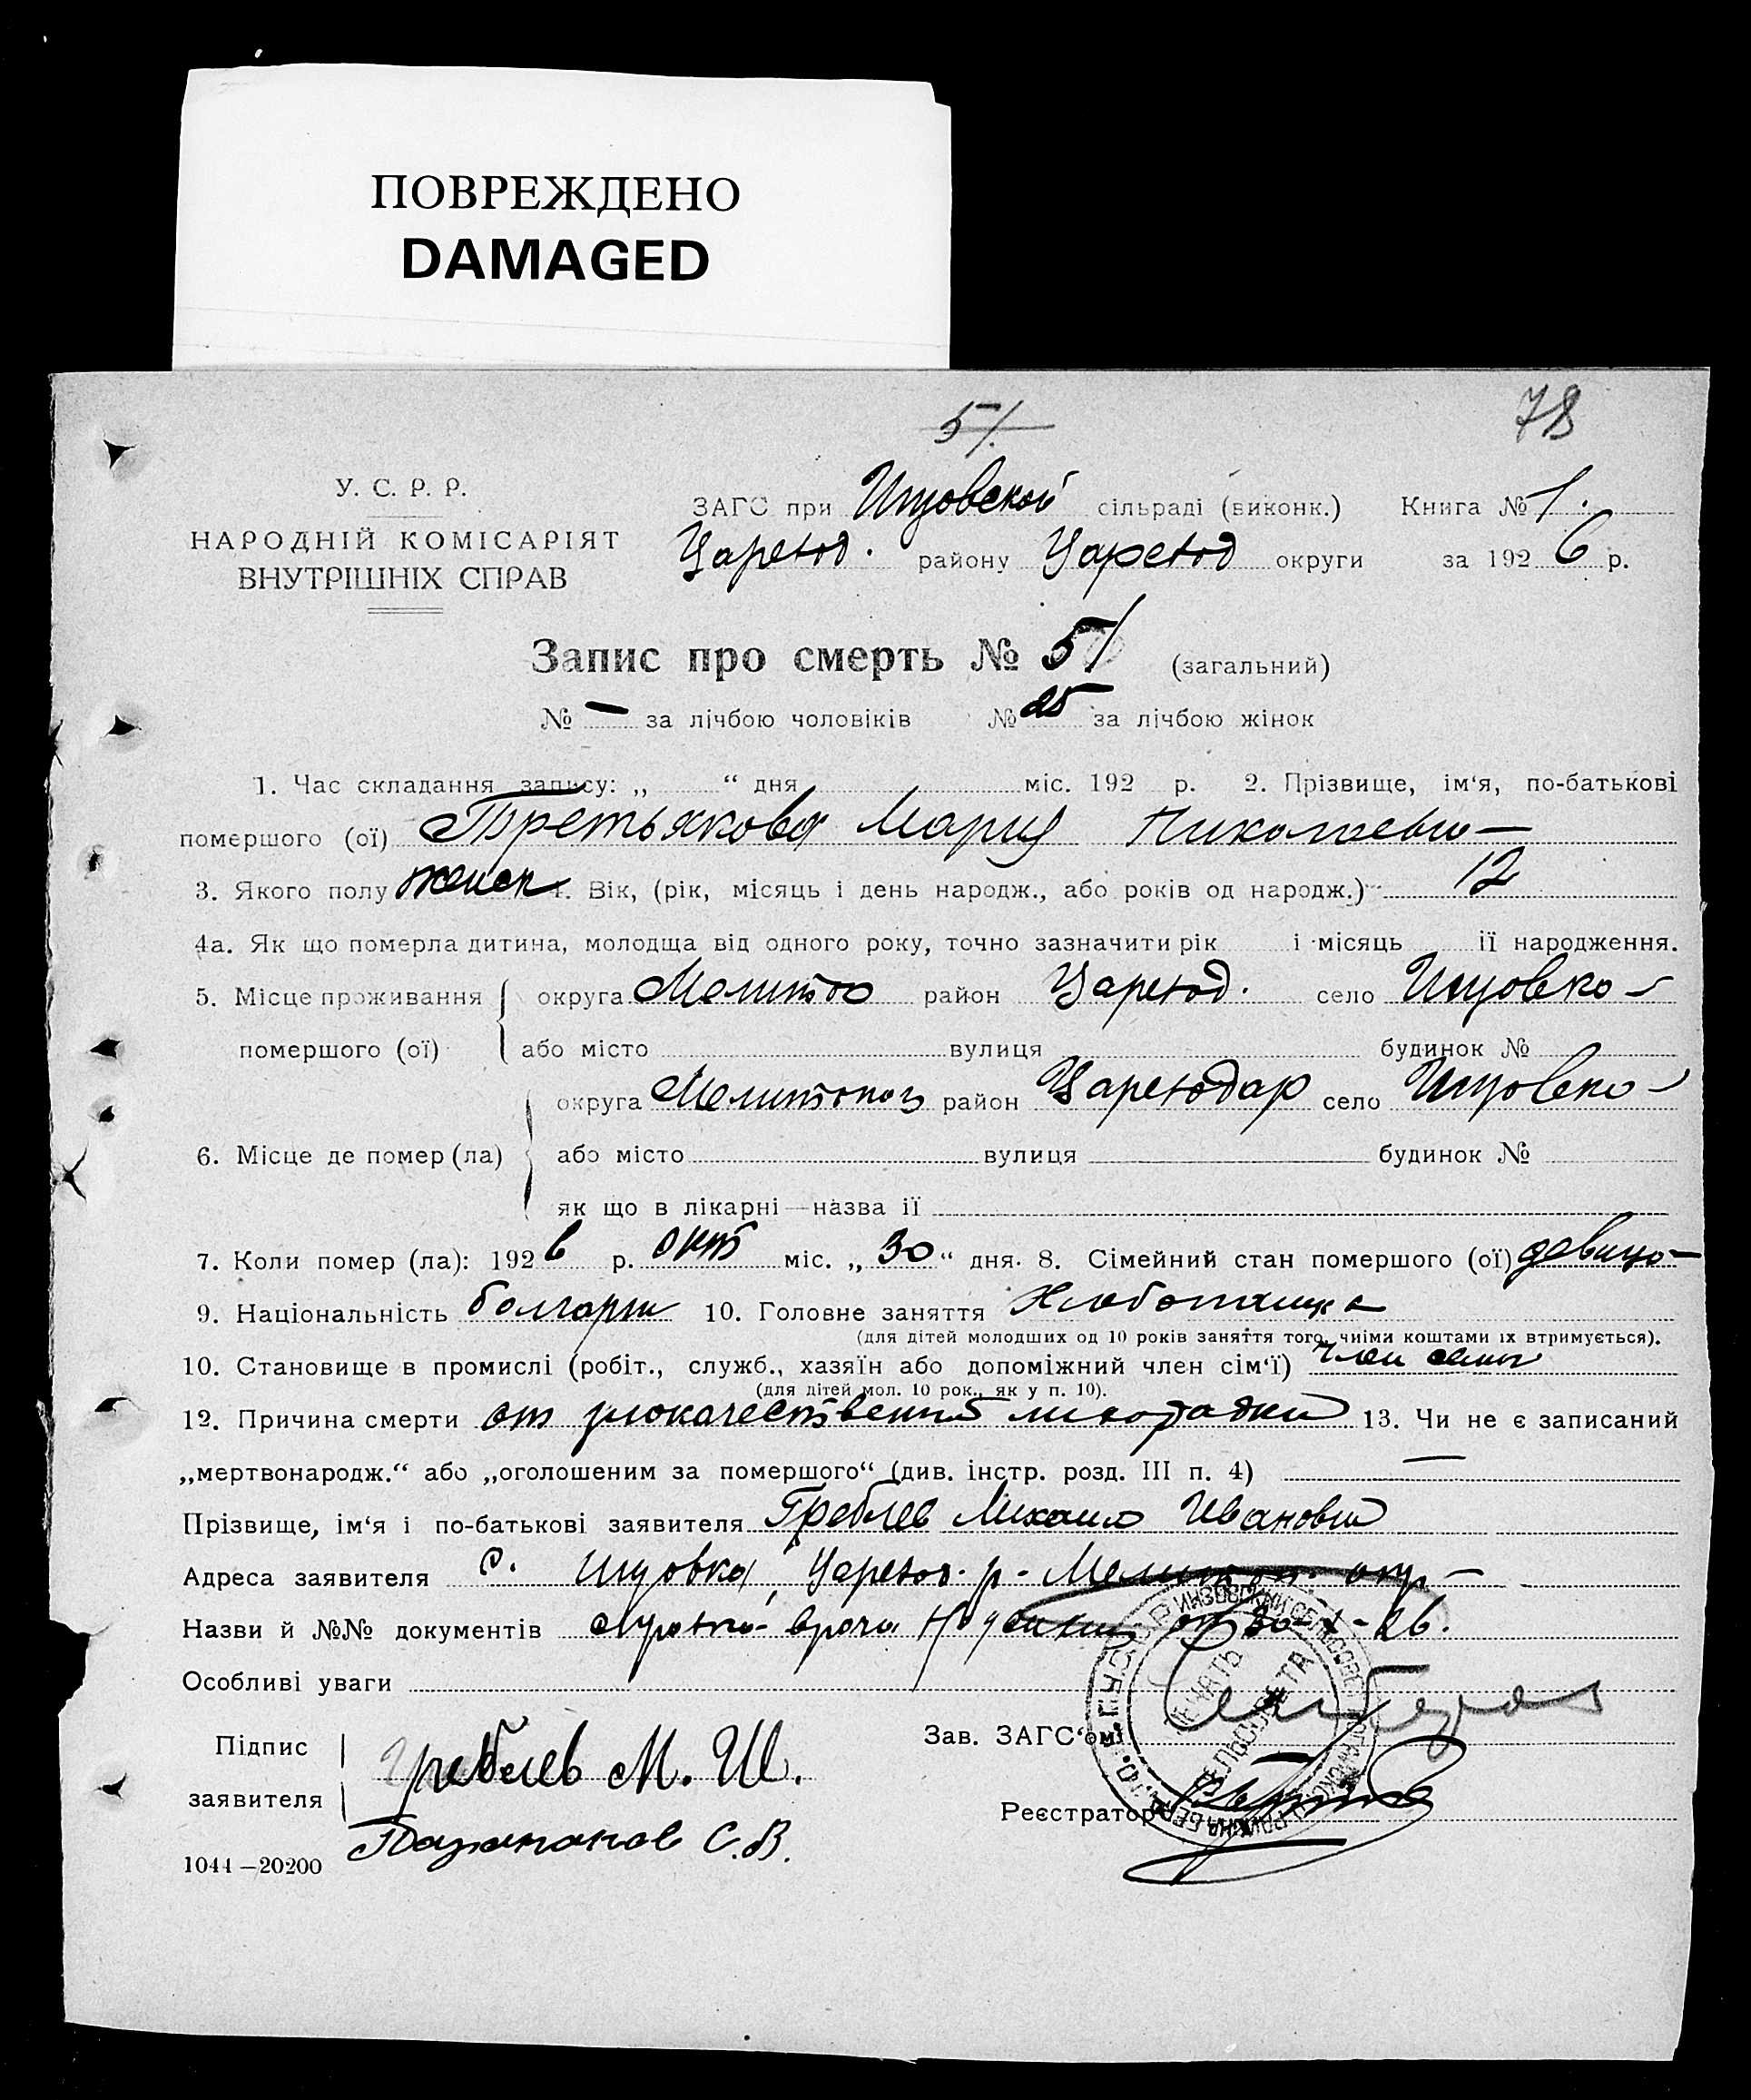 ПОВРЕЖДЕНО
DAMAGED
51.
78
У. С. Р. Р.
НАРОДНІЙ КОМІСАРІЯТ
ВНУТРІШНІХ СПРАВ
ЗАГС при Инзовской сільраді (виконк.) Книга № 1.
Царевод. району Царевод округи за 1926 р.
Запис про смерть № 51 (загальний)
№ — за лічбою чоловіків № 25 за лічбою жінок
1. Час складання запису: „ “ дня міс. 192 р. 2. Прізвище, ім‘я, по-батькові
помершого (ої) Третьякова Мария Николаевн—
3. Якого полу женск 4. Вік, (рік, місяць і день народж., або років од народж.) 12
4а. Як що померла дитина, молодща від одного року, точно зазначити рік і місяць ії народження.
5. Місце проживання округа Мелитоо район Царевод. село Инзовко
помершого (ої) або місто вулиця будинок №
округа Мелитопол район Цареводар село Инзовко
6. Місце де помер (ла) або місто вулиця будинок №
як що в лікарні—назва ії
7. Коли помер (ла): 1926 р. окт міс. „30“ дня. 8. Сімейний стан помершого (ої) девица
9. Національність болгарк 10. Головне заняття Хлебопашца
(для дітей молодших од 10 років заняття того, чиїми коштами їх втримується).
10. Становище в промислі (робіт., служб., хазяїн або допоміжний член сім‘ї) член семьи
(для дітей мол. 10 рок., як у п. 10).
12. Причина смерти от злокачественной лихорадки 13. Чи не є записаний
„мертвонародж.“ або „оголошеним за помершого“ (див. інстр. розд. III п. 4) —
Прізвище, ім‘я і по-батькові заявителя Греблев Михаил Иванови
Адреса заявителя с. Инзовка, Царевод. р- Мелитоп. окр—
Назви й №№ документів врача от 30-X-26.
Особливі уваги
Підпис
заявителя
Греблев М. И.
С. В.
Зав. ЗАГС‘ом
Реєстратор
ПЕЧАТЬ
СЕЛЬСОВЕТА
1044—20200